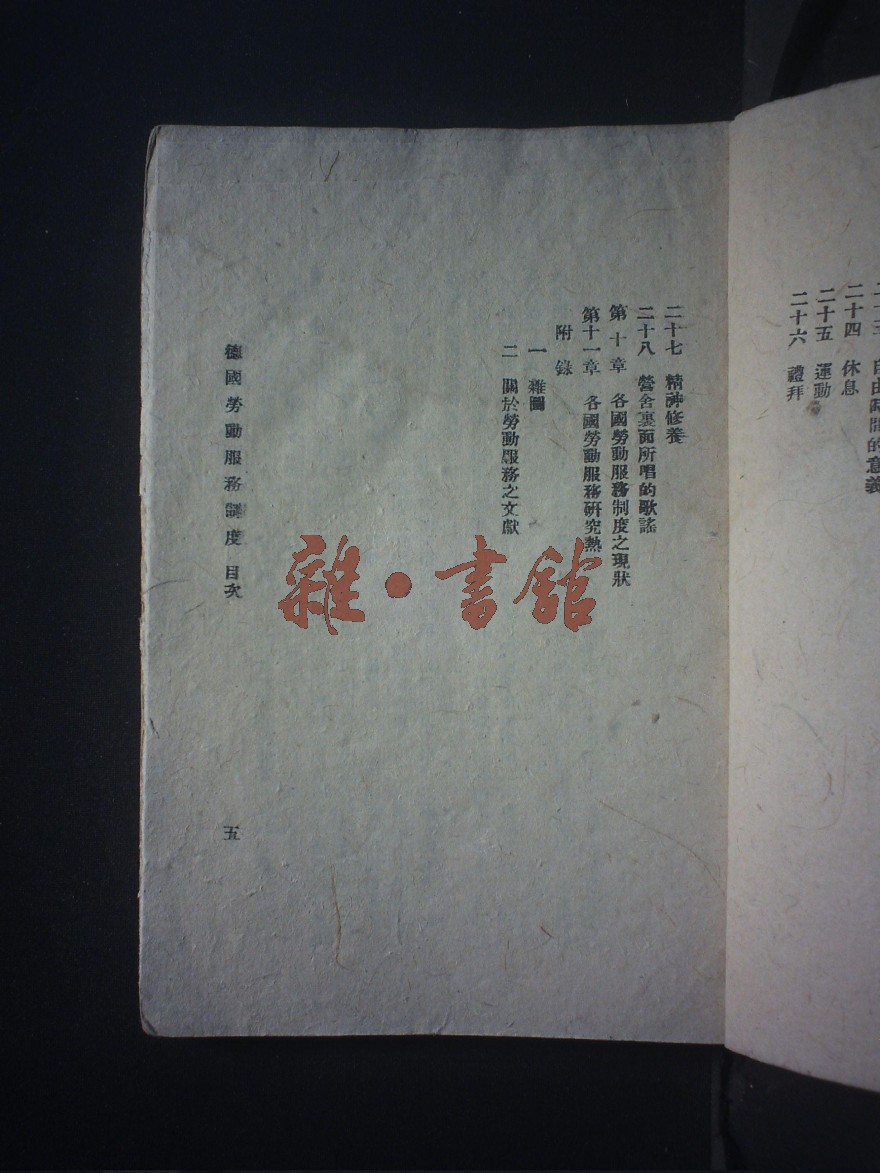 自由時間的意義
二十四 休息
二十五 運動
二十六 禮拜
二十七 精神修養
二十八 營舍裏面所唱的歌謠
第十章 各國勞動服務制度之現狀
第十一章 各國勞動服務研究熱
附錄
一 雜圖
二 關於勞動服務之文獻
德國勞動服務制度 目次
五
雜·書館